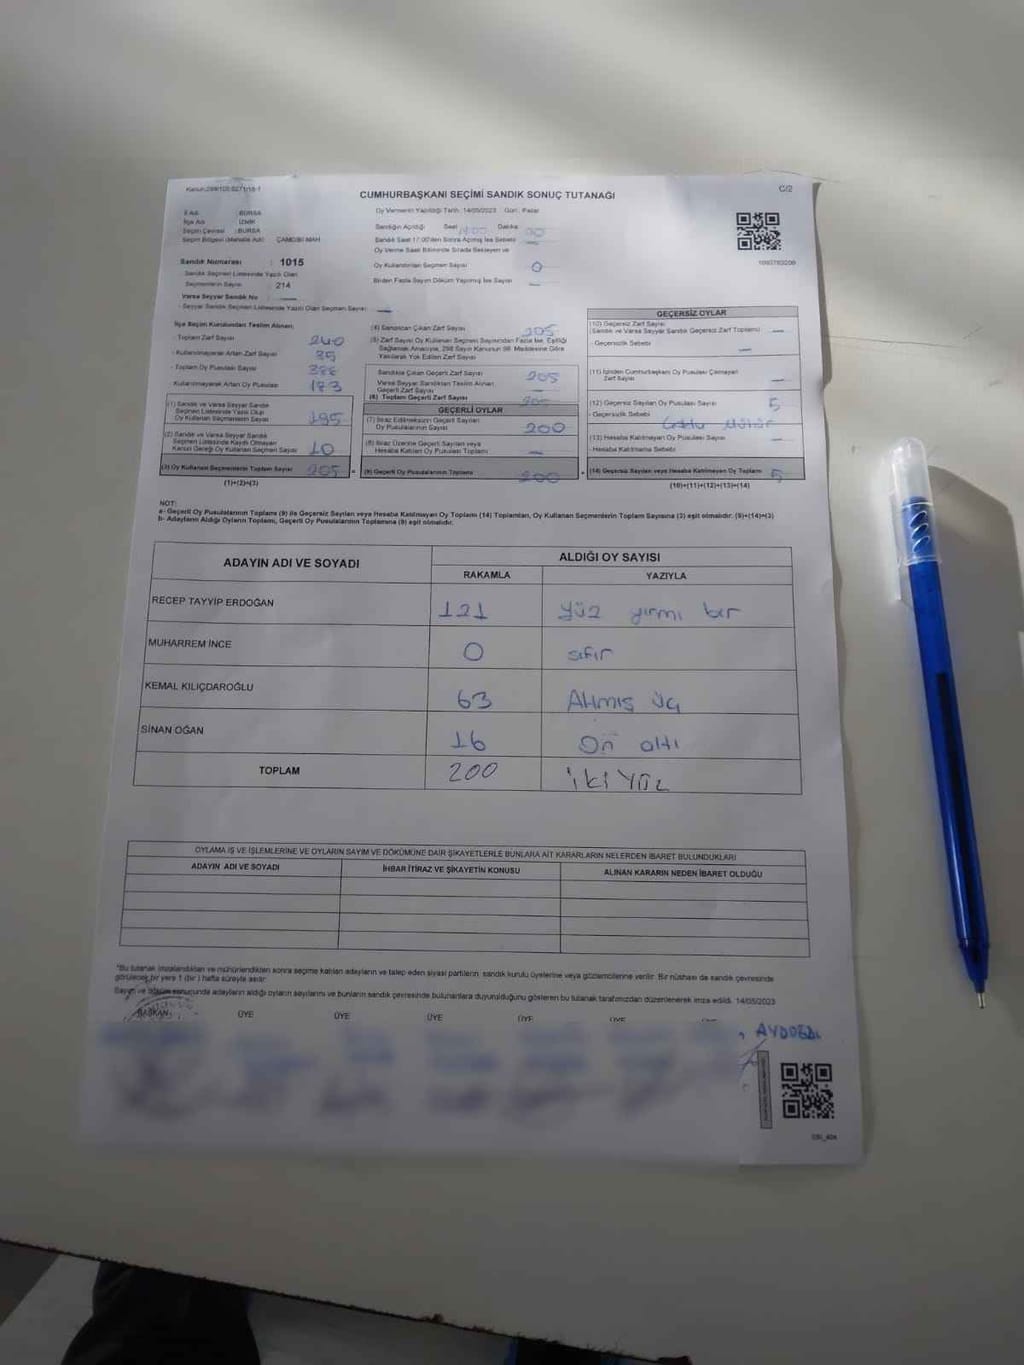 CUMHURBAŞKANI SEÇİMİ SANDIK SONUÇ TUTANAĞI
C/2
Oy Vermenin Yapıldığı Tarih: 14/05/2023 Gün: Pazar
İl Adı : BURSA
İlçe Adı : İZNİK
Seçim Çevresi : BURSA
Seçim Bölgesi (Mahalle Adı)
Sandık Numarası : 1015
Sandık Seçmen Listesinde Yazılı Olan
Seçmenlerin Sayısı : 214
Varsa Seyyar Sandık No
- Seyyar Sandık Seçmen Listesinde Yazılı Olan Seçmen Sayısı
Sandığın Açıldığı Saat Dakika
Sandık Saat 17:00'den Sonra Açılmış İse Sebebi
Oy Verme Saati Bitiminde Sırada Bekleyen ve
Oy Kullandırılan Seçmen Sayısı 0
Birden Fazla Sayım Döküm Yapılmış İse Sayısı
İlçe Seçim Kurulundan Teslim Alınan;
- Toplam Zarf Sayısı 240
- Kullanılmayarak Artan Zarf Sayısı 35
- Toplam Oy Pusulası Sayısı
Kullanılmayarak Artan Oy Pusulası
(1) Sandık ve Varsa Seyyar Sandık
Seçmen Listesinde Yazılı Olup
Oy Kullanan Seçmenlerin Sayısı 195
(2) Sandık ve Varsa Seyyar Sandık
Seçmen Listesinde Kayıtlı Olmayan
Kanun Gereği Oy Kullanan Seçmen Sayısı 10
(3) Oy Kullanan Seçmenlerin Toplam Sayısı 205
(1)+(2)=(3)
(4) Sandıktan Çıkan Zarf Sayısı 205
(5) Zarf Sayısı Oy Kullanan Seçmen Sayısından Fazla İse, Eşitliği
Sağlamak Amacıyla, 298 Sayılı Kanunun 98. Maddesine Göre
Yakılarak Yok Edilen Zarf Sayısı
Sandıkta Çıkan Geçerli Zarf Sayısı 205
Varsa Seyyar Sandıktan Teslim Alınan
Geçerli Zarf Sayısı
(6) Toplam Geçerli Zarf Sayısı 205
GEÇERLİ OYLAR
(7) İtiraz Edilmeksizin Geçerli Sayılan
Oy Pusulalarının Sayısı 200
(8) İtiraz Üzerine Geçerli Sayılan veya
Hesaba Katılan Oy Pusulası Toplamı
(9) Geçerli Oy Pusulalarının Toplamı 200
GEÇERSİZ OYLAR
(10) Geçersiz Zarf Sayısı
(Sandık ve Varsa Seyyar Sandık Geçersiz Zarf Toplamı)
- Geçersizlik Sebebi
(11) İçinden Cumhurbaşkanı Oy Pusulası Çıkmayan
Zarf Sayısı
(12) Geçersiz Sayılan Oy Pusulası Sayısı 5
- Geçersizlik Sebebi
(13) Hesaba Katılmayan Oy Pusulası Sayısı
Hesaba Katılmama Sebebi
(14) Geçersiz Sayılan veya Hesaba Katılmayan Oy Toplamı 5
(10)+(11)+(12)+(13)=(14)
NOT:
a- Geçerli Oy Pusulalarının Toplamı (9) ile Geçersiz Sayılan veya Hesaba Katılmayan Oy Toplamı (14) Toplamları, Oy Kullanan Seçmenlerin Toplam Sayısına (3) eşit olmalıdır. (9)+(14)=(3)
b- Adayların Aldığı Oyların Toplamı, Geçerli Oy Pusulalarının Toplamına (9) eşit olmalıdır.
ADAYIN ADI VE SOYADI ALDIĞI OY SAYISI
RAKAMLA YAZIYLA
RECEP TAYYİP ERDOĞAN 121 Yüz yirmi bir
MUHARREM İNCE 0 sıfır
KEMAL KILIÇDAROĞLU 63 Altmış üç
SİNAN OĞAN 16 On altı
TOPLAM 200 iki YÜZ
OYLAMA İŞ VE İŞLEMLERİNE VE OYLARIN SAYIM VE DÖKÜMÜNE DAİR ŞİKAYETLERLE BUNLARA AİT KARARLARIN NELERDEN İBARET BULUNDUKLARI
ADAYIN ADI VE SOYADI İHBAR İTİRAZ VE ŞİKAYETİN KONUSU ALINAN KARARIN NEDEN İBARET OLDUĞU
*Bu tutanak imzalandıktan ve mühürlendikten sonra seçime katılan adayların ve talep eden siyasi partilerin sandık kurulu üyelerine veya gözlemcilerine verilir. Bir nüshası da sandık çevresinde
görülecek bir yere 1 (bir) hafta süreyle asılır.
Sayım ve döküm sonucunda adayların aldığı oyların sayılarını ve bunların sandık çevresinde bulunanlara duyurulduğunu gösteren bu tutanak tarafımızdan düzenlenerek imza edildi. 14/05/2023
BAŞKAN ÜYE ÜYE ÜYE ÜYE ÜYE ÜYE